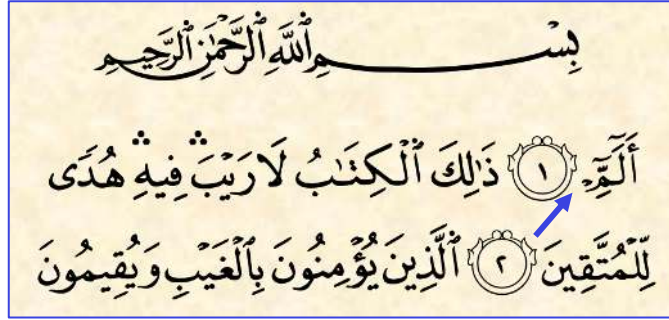 بِسْمِ ٱللَّهِ ٱلرَّحْمَٰنِ ٱلرَّحِيمِ
أَلَمِّٓۡ ١ ذَٰلِكَ ٱلْكِتَٰبُ لَا رَيْبَ ۛ فِيهِ ۛ هُدًى
لِّلْمُتَّقِينَ ٢ ٱلَّذِينَ يُؤْمِنُونَ بِٱلْغَيْبِ وَيُقِيمُونَ